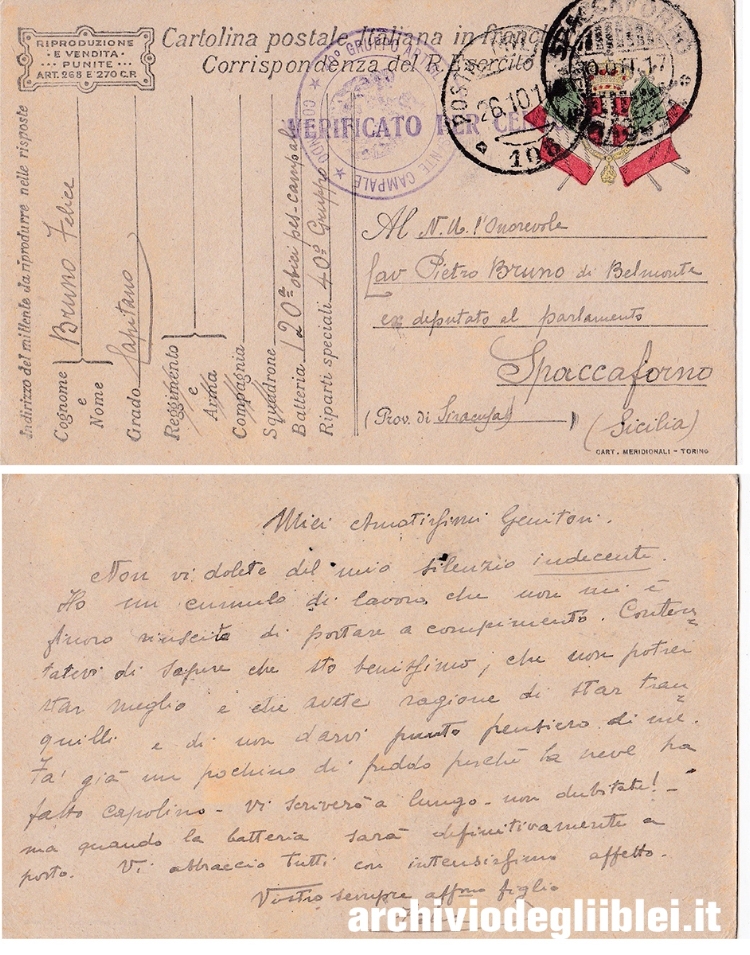 RIPRODUZIONE
E VENDITA
PUNITE
ART. 268 E 270 C.P.
Cartolina postale Italiana in franchi
Corrispondenza del R. Esercito
VERIFICATO PER CEN
GRUPPO
CAMPALE
POSTA
26.10.1
108
SPACCAFORNO
17
Indirizzo del mittente da riprodurre nelle risposte
Cognome e Nome Bruno Felice
Grado Capitano
Reggimento
e
Arma
Compagnia
Squadrone
Batteria 120ª obici pes-campali
Riparti speciali 40º Gruppo
Al N. U. l'Onorevole
Cav Pietro Bruno di Belmonte
ex deputato al parlamento
Spaccaforno
(Prov. di Siracusa)
(Sicilia)
CART. MERIDIONALI - TORINO
Miei Amatissimi Genitori.
Non vi dolete del mio silenzio indecente.
Ho un cumulo di lavoro che non mi è
finora riuscito di portare a compimento. Conten=
tatevi di sapere che sto benissimo, che non potrei
star meglio e che avete ragione di star tran=
quilli e di non darvi punto pensiero di me.
Fa' già un pochino di freddo perchè la neve ha
fatto capolino - Vi scriverò a lungo - non dubitate! -
ma quando la batteria sarà definitivamente a
posto. Vi abbraccio tutti con intensissimo affetto.
Vostro sempre affmo figlio
archiviodegliiblei.it